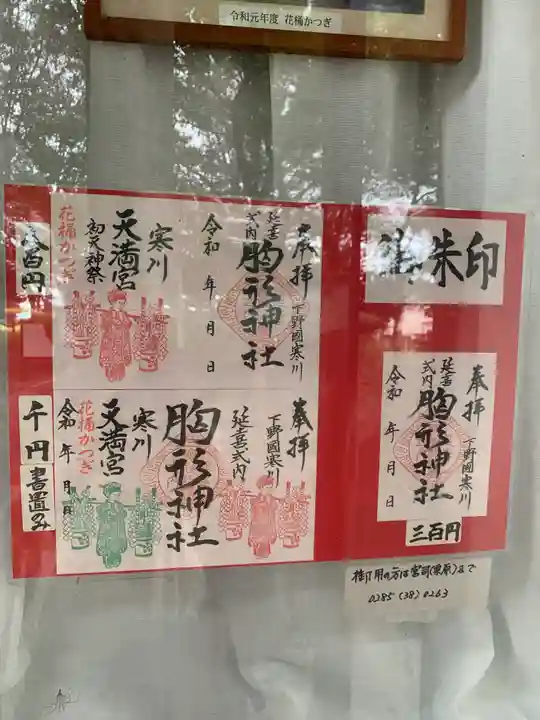 令和元年度 花桶かつぎ
御朱印
奉拝
下野國寒川
延喜
式内
胸形神社
令和 年 月 日
三百円
奉拝
下野國寒川
延喜
式内
胸形神社
令和 年 月 日
寒川
天満宮
初天神祭
花桶かつぎ
百円
奉拝
下野國寒川
延喜式内
胸形神社
寒川
天満宮
花桶かつぎ
令和 年 月 日
千円
書置のみ
御用の方は宮司(栗原)まで
0285 (38) 0263